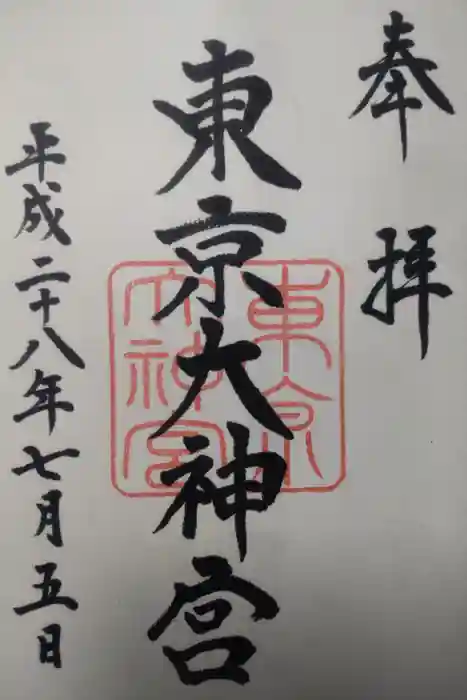 奉拝
東京大神宮
東京
大神宮
平成二十八年七月五日